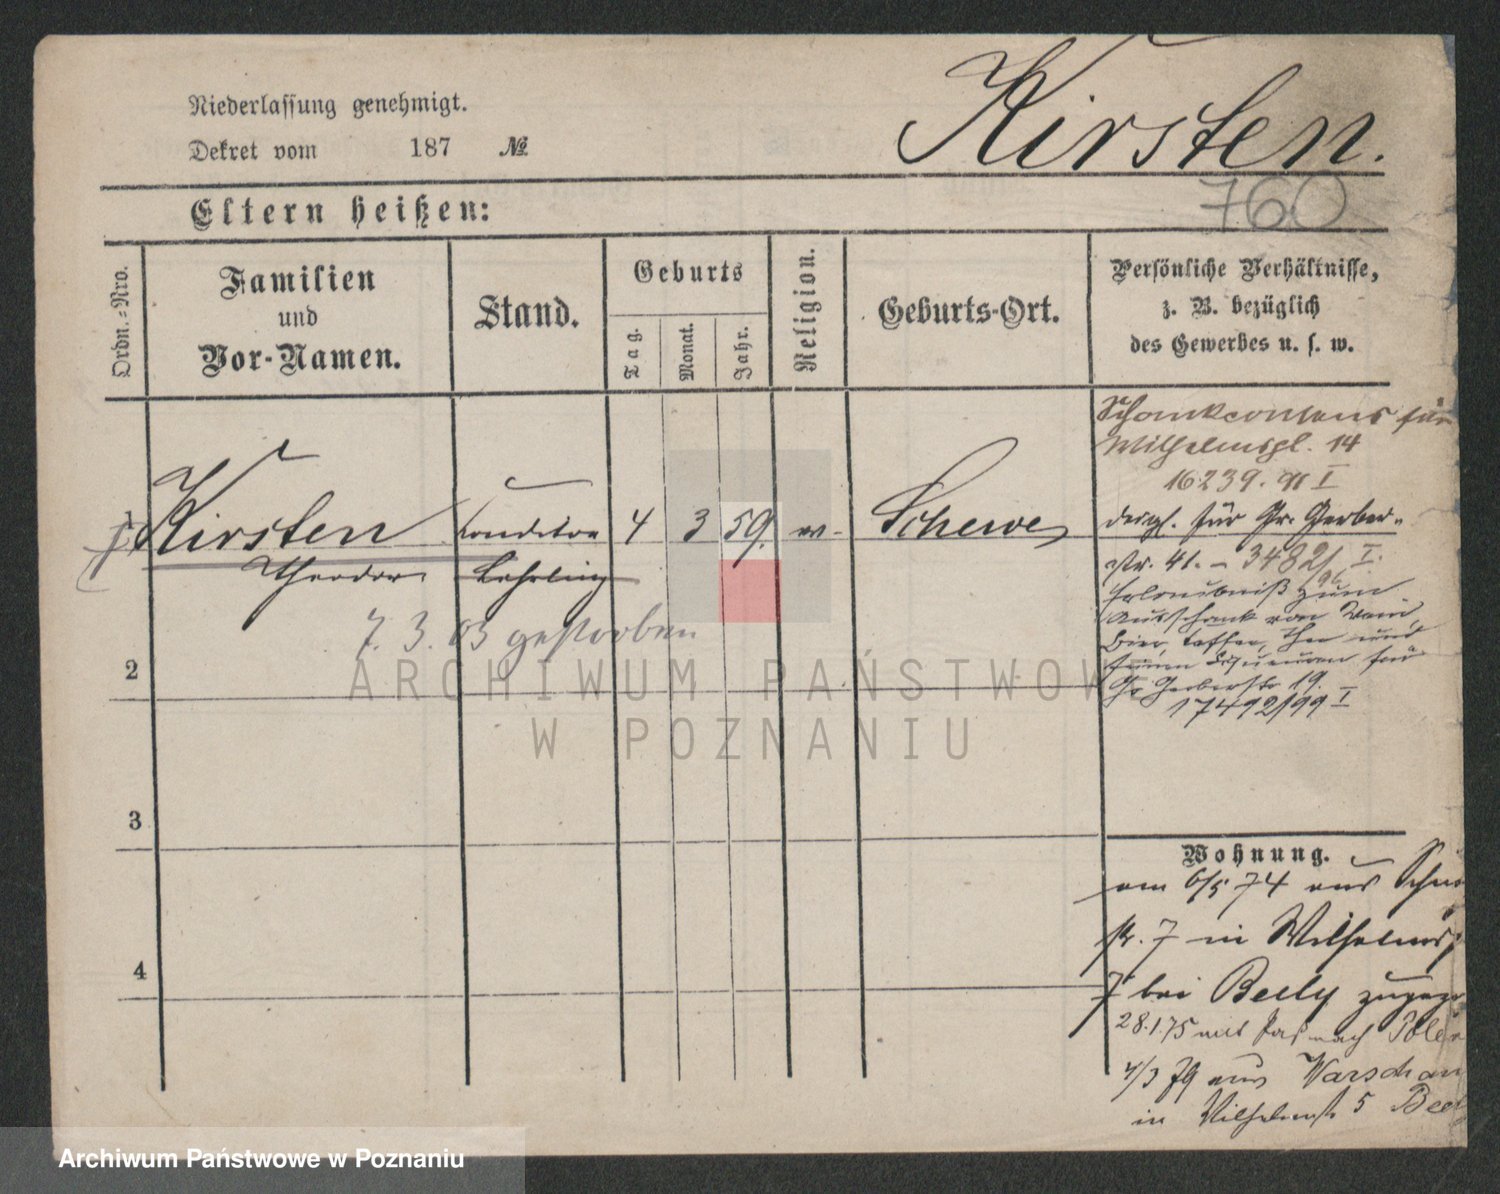 Niederlassung genehmigt.
Kirsten.
Dekret vom 187 №
760
Eltern heißen:
Ordn.-Nro.
Familien
und
Vor-Namen.
Stand.
Geburts
Tag.
Monat.
Jahr.
Religion.
Geburts-Ort.
Persönliche Verhältnisse,
z. B. bezüglich
des Gewerbes u. s. w.
Schankconsens für
Wilhelmspl. 14
16239. I
1 Kirsten Conditor 4 3 59. Schewe
Theodor Lehrling
7. 3. 03 gestorben
desgl. für Gr. Gerber-
str. 41. – 3482/96 I.
Erlaubniß zum
Ausschank von Wein,
Bier, Kaffee, Thee und
feinen Liqueuren für
Gr. Gerberstr. 19.
17492/99 I
2
3
4
Wohnung.
am 6/5 74 aus
str. 7 in Wilhelms
7 bei Beely
28.1.75 mit Paß nach Polen
4/3 79 aus Warschau
in Wilhelmstr. 5 Beely
ARCHIWUM PAŃSTWOWE
W POZNANIU
Archiwum Państwowe w Poznaniu